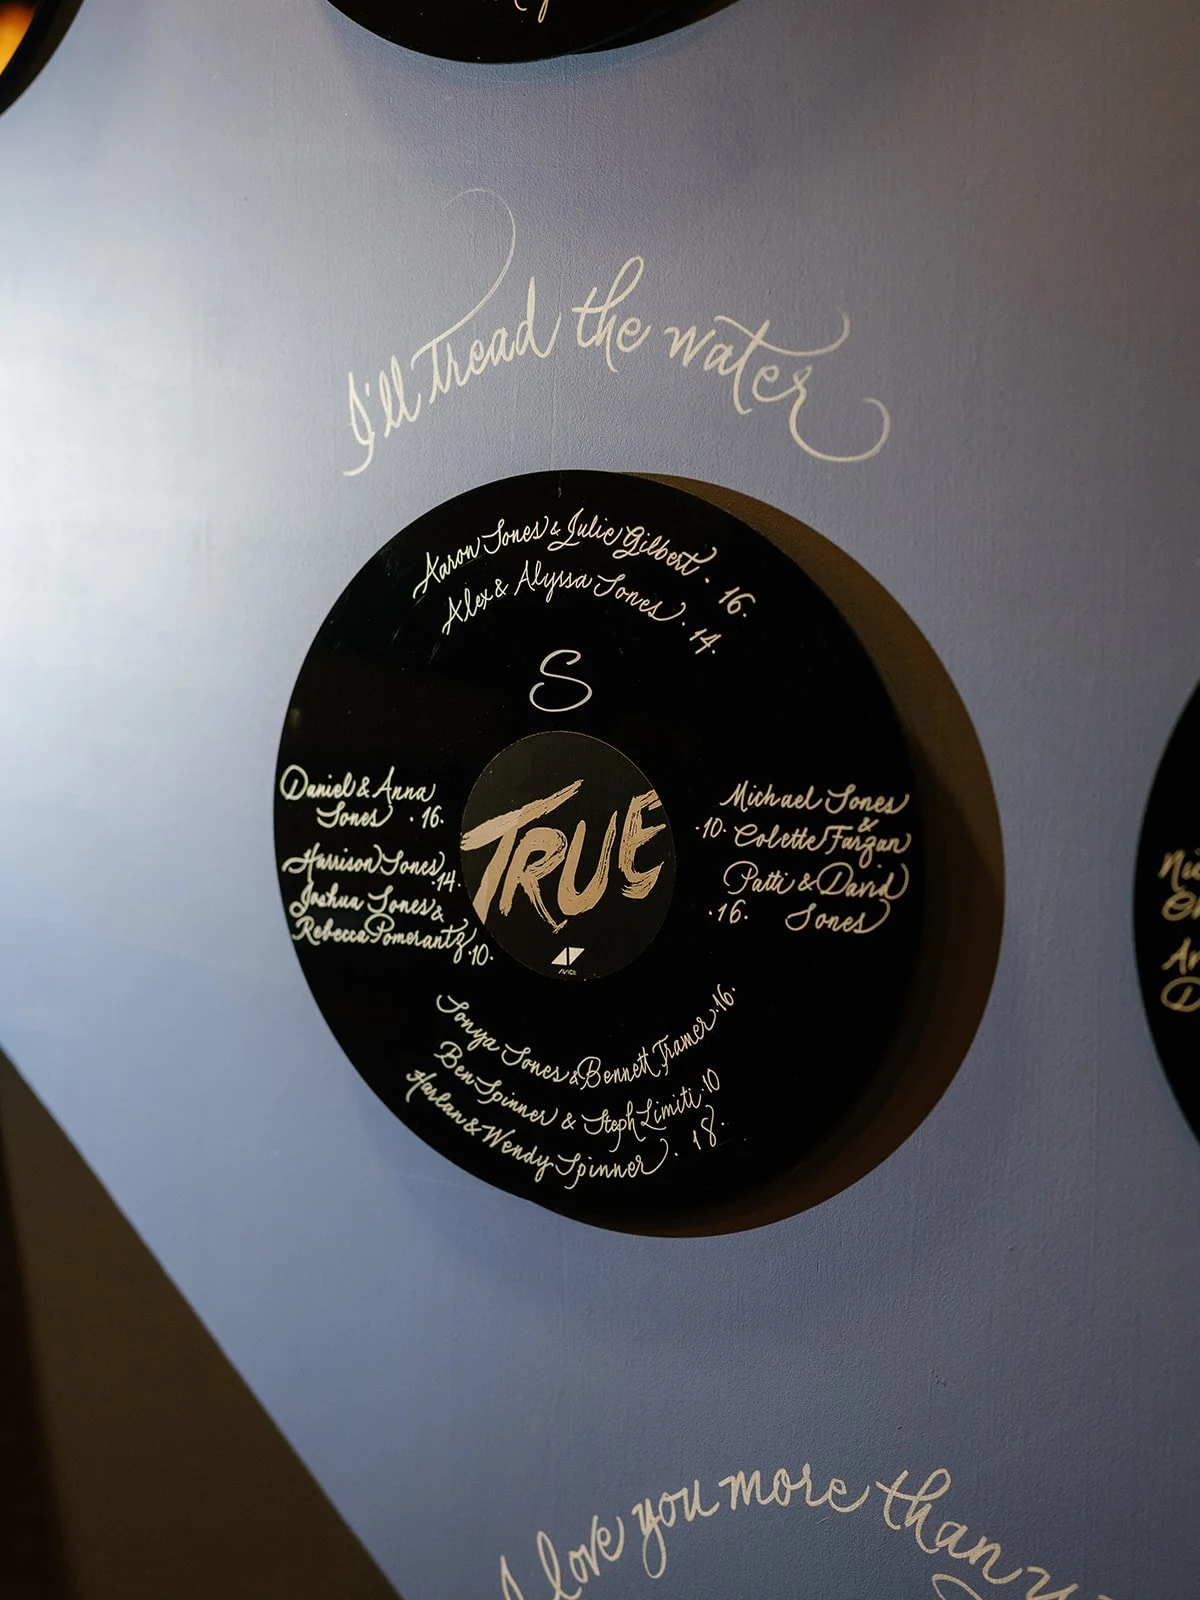 I'll Tread the water
Aaron Sones & Julie Gilbert · 16 ·
Alex & Alyssa Sones · 14 ·
S
Daniel & Anna
Sones · 16 ·
Harrison Sones · 14 ·
Joshua Sones &
Rebecca Pomerantz · 10 ·
TRUE
AVICII
Michael Sones
&
· 10 · Colette Fargan
Patti & David
· 16 · Sones
Sonya Sones & Bennett Tramer · 16 ·
Ben Spinner & Steph Limiti · 10
Harlan & Wendy Spinner · 18 ·
I love you more than